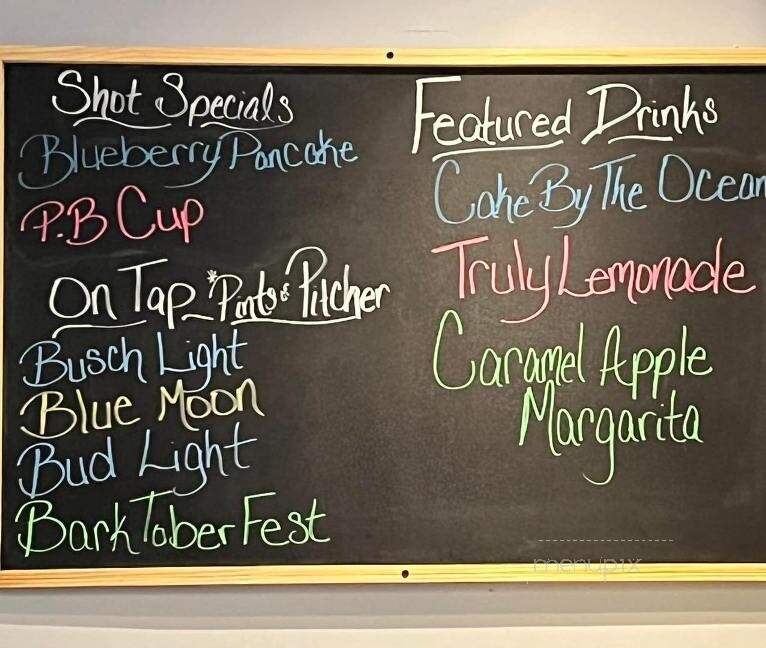 Shot Specials
Blueberry Pancake
P.B Cup
On Tap *Pints & Pitcher
Busch Light
Blue Moon
Bud Light
BarkToberFest
Featured Drinks
Cake By The Ocean
Truly Lemonade
Caramel Apple
Margarita
menupix